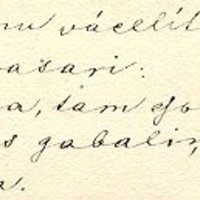 nu vācelīt
ašari:
a, tam go
s gabalin,
a.